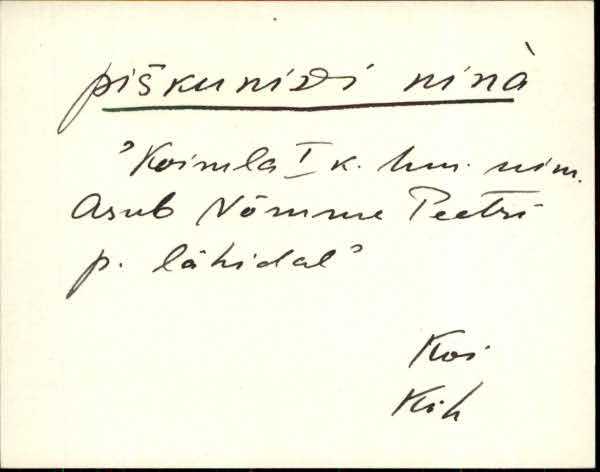 piškunizi ninà
"Koimla I k. hm. nim.
Asub Nõmme Peetri
p. lähidal"
Koi
Kih